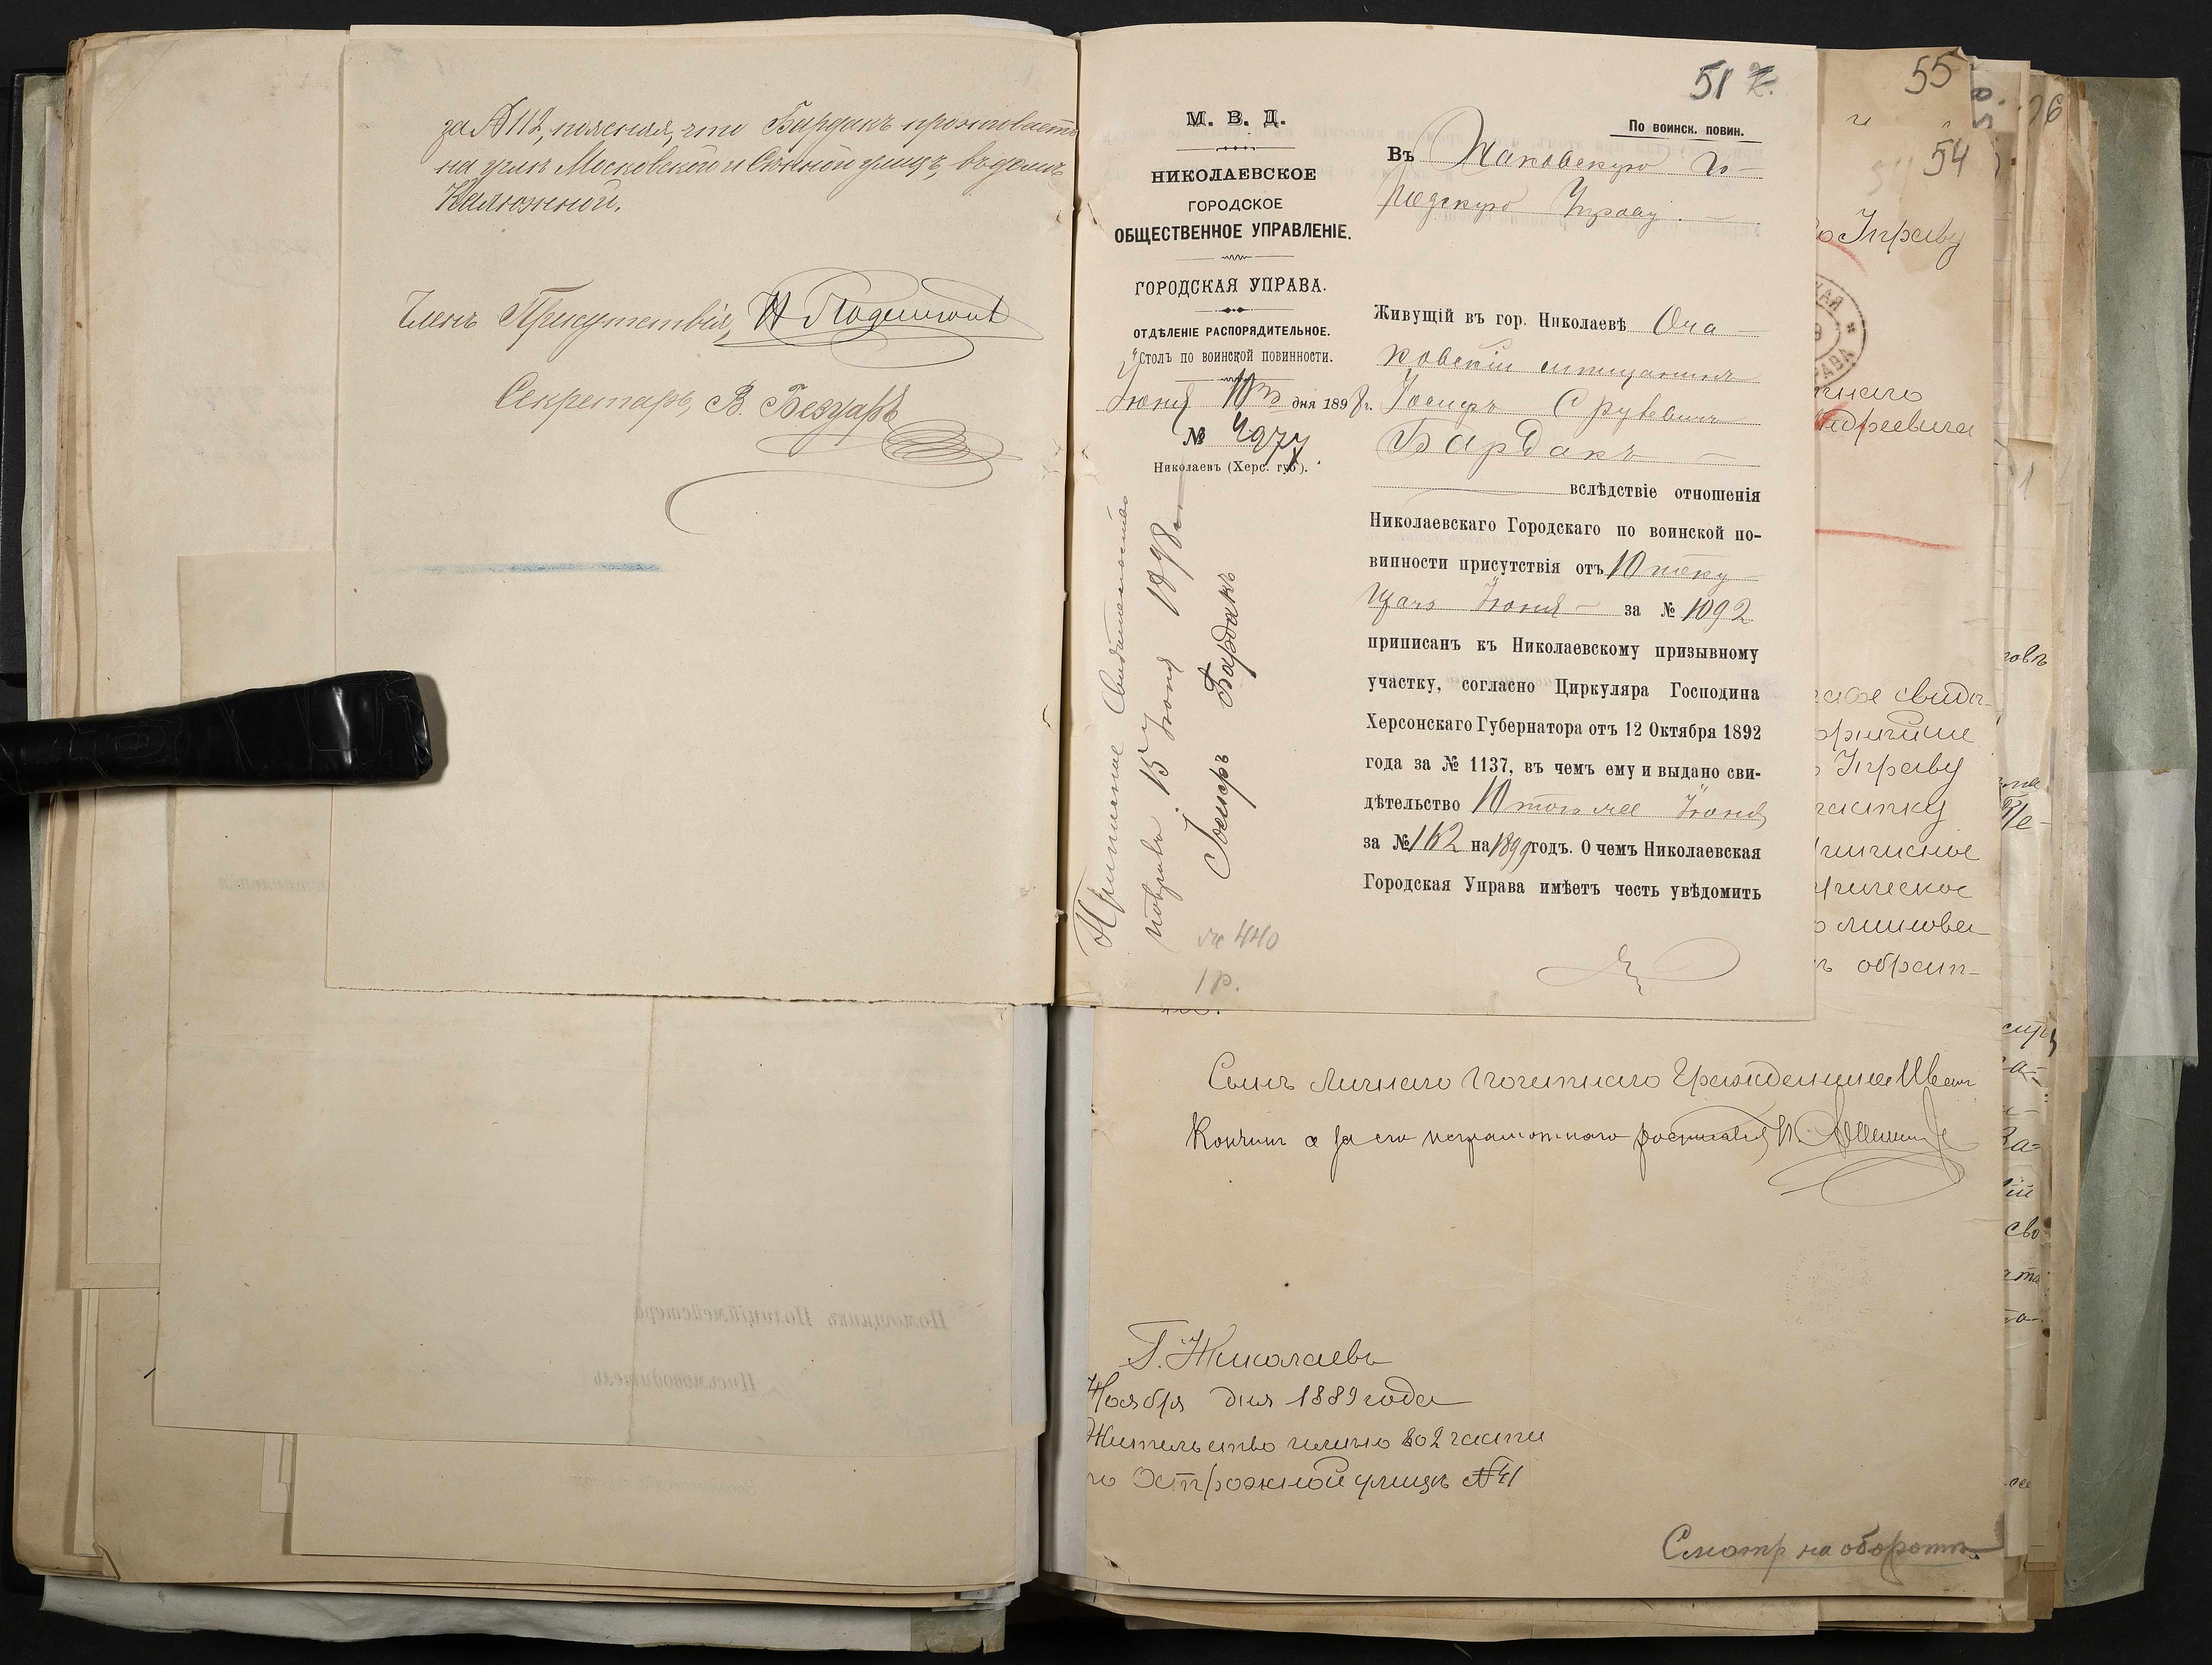 за № 112, поясняя, что Бардакъ проживаетъ
на углѣ Московской и Сѣнной улицъ, въ домѣ
Калюжной.
Членъ Присутствія,
Секретарь, В.
51
По воинск. повин.
М. В. Д.
НИКОЛАЕВСКОЕ
ГОРОДСКОЕ
ОБЩЕСТВЕННОЕ УПРАВЛЕНІЕ.
ГОРОДСКАЯ УПРАВА.
ОТДѢЛЕНІЕ РАСПОРЯДИТЕЛЬНОЕ.
Столъ по воинской повинности.
Іюня 10 дня 1898 г.
№ 4977
Николаевъ (Херс. губ).
Въ Го-
родскую Управу.
Живущій въ гор. Николаевѣ Оча-
ковскій мѣщанинъ
Іосифъ Срулевичъ
Бардакъ
вслѣдствіе отношенія
Николаевскаго Городскаго по воинской по-
винности присутствія отъ 10 теку-
щаго Іюня за № 1092
приписанъ къ Николаевскому призывному
участку, согласно Циркуляра Господина
Херсонскаго Губернатора отъ 12 Октября 1892
года за № 1137, въ чемъ ему и выдано сви-
дѣтельство 10 того же Іюня
за № 162 на 1899 годъ. О чемъ Николаевская
Городская Управа имѣетъ честь увѣдомить
Приписное Свидетельство
получилъ 15 Іюня 1898 г.
Іосифъ Бардакъ
440
1 р.
55
54
Управу
Управу
участку
обрат-
Сынъ личнаго почетнаго гражданина Иванъ
а за его неграмотнаго росписался
Г. Николаевъ
Ноября дня 1889 года
Жительство имѣю во 2 части
по Острожной улицѣ № 41
Смотр на оборотѣ
Помощникъ Полиціймейстера
Письмоводитель